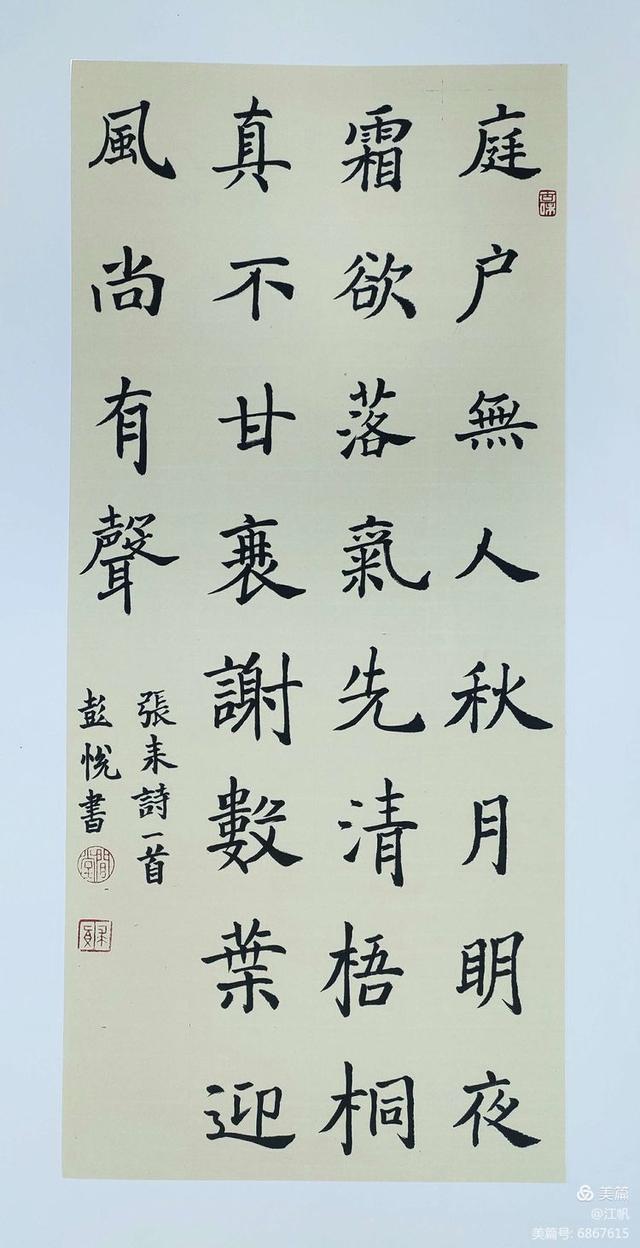 庭户無人秋月明夜
霜欲落氣先清梧桐
真不甘衰謝數葉迎
風尚有聲
張耒詩一首
彭悦書
美篇
@江帆
美篇号: 6867615